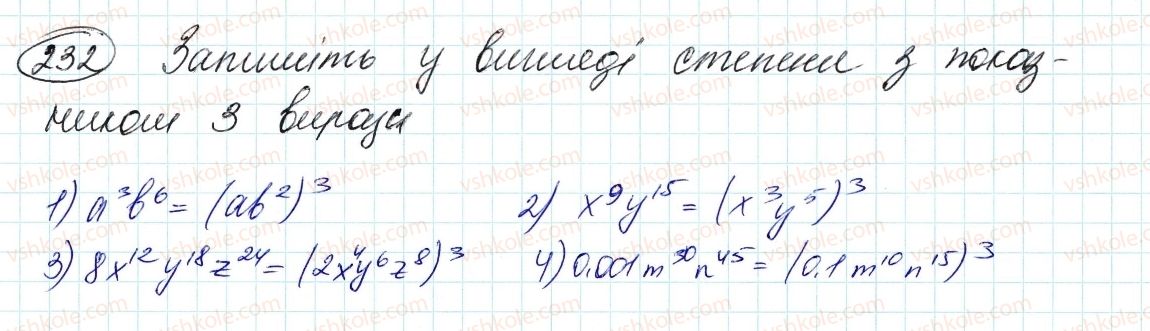 232 Запишіть у вигляді степеня з показ-
ником 3 вирази
1) a³b⁶ = (ab²)³ 2) x⁹y¹⁵ = (x³y⁵)³
3) 8x¹²y¹⁸z²⁴ = (2x⁴y⁶z⁸)³ 4) 0.001m³⁰n⁴⁵ = (0.1m¹⁰n¹⁵)³
vshkole.com